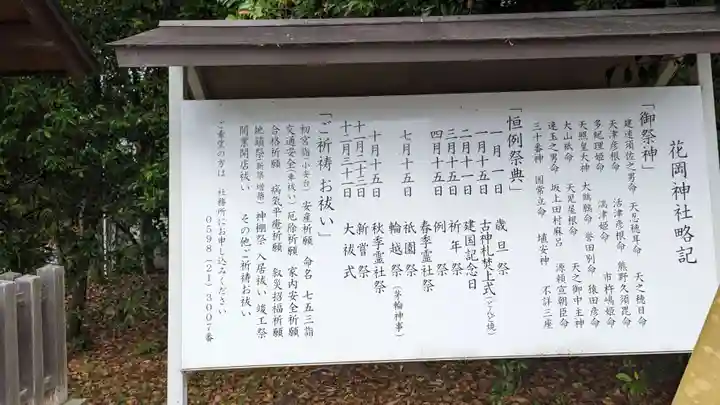 花岡神社略記
「御祭神」
建速須佐之男命 天忍穂耳命 天之穂日命
天津彦根命 活津彦根命 熊野久須毘命
多紀理姫命 湍津姫命 市杵嶋姫命
天照皇大神 大鷦鷯命 誉田別命 猿田彦命
大山祇命 天児屋根命 天之御中主神
速玉之男命 坂上田村麻呂 源頼宣朝臣命
三十番神 国常立命 埴安神 不詳三座
「恒例祭典」
一月一日 歳旦祭
一月十五日 古神札焚上式(どんど焼)
二月十一日 建国記念日
三月十五日 祈年祭
四月十五日 例祭
春季霊社祭
七月十五日 祇園祭
輪越祭(茅輪神事)
十月十五日 秋季霊社祭
十一月二十三日 新嘗祭
十二月三十一日 大祓式
「ご祈祷 お祓い」
初宮詣(小安台) 安産祈願 命名 七五三詣
交通安全(車祓い) 厄除祈願 家内安全祈願
合格祈願 病気平癒祈願 敍災招福祈願
地鎮祭(新築 増築) 神棚祭 入居祓い 竣工祭
開業開店祓い その他ご祈祷お祓い
ご希望の方は 社務所にお申し込みください
0598(21)3007番